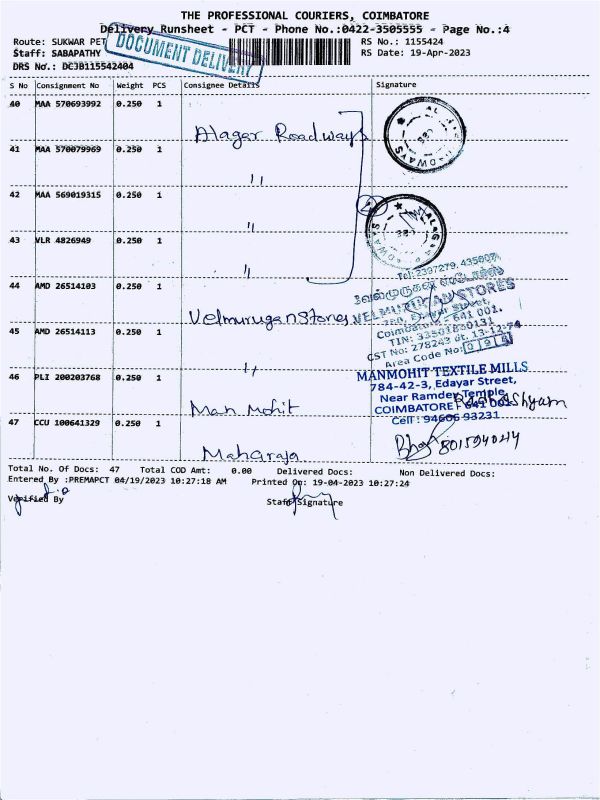 THE PROFESSIONAL COURIERS, COIMBATORE
Delivery Runsheet - PCT - Phone No.:0422-3505555 - Page No.:4
Route: SUKWAR PET
RS No.: 1155424
Staff: SABAPATHY
RS Date: 19-Apr-2023
DRS No.: DCJB115542404
DOCUMENT DELIVERY
S No Consignment No Weight PCS Consignee Details Signature
40 MAA 570693992 0.250 1
Alagar Roadways
41 MAA 570079969 0.250 1
"
42 MAA 569019315 0.250 1
"
43 VLR 4826949 0.250 1
"
44 AMD 26514103 0.250 1
Velmurugan Stores
Tel: 2397279, 435807
VELMURUGAN STORES
Coimbatore - 641 001.
TIN: 33501830131
CST No: 278243 dt. 13-12-74
Area Code No: 095
45 AMD 26514113 0.250 1
"
46 PLI 200203768 0.250 1
Man Mohit
MANMOHIT TEXTILE MILLS
784-42-3, Edayar Street,
Near Ramdev Temple
COIMBATORE - 641 001.
Cell : 94606 93231
47 CCU 100641329 0.250 1
Maharaja
Total No. Of Docs: 47 Total COD Amt: 0.00 Delivered Docs: Non Delivered Docs:
Entered By :PREMAPCT 04/19/2023 10:27:18 AM Printed On: 19-04-2023 10:27:24
Verified By Staff Signature